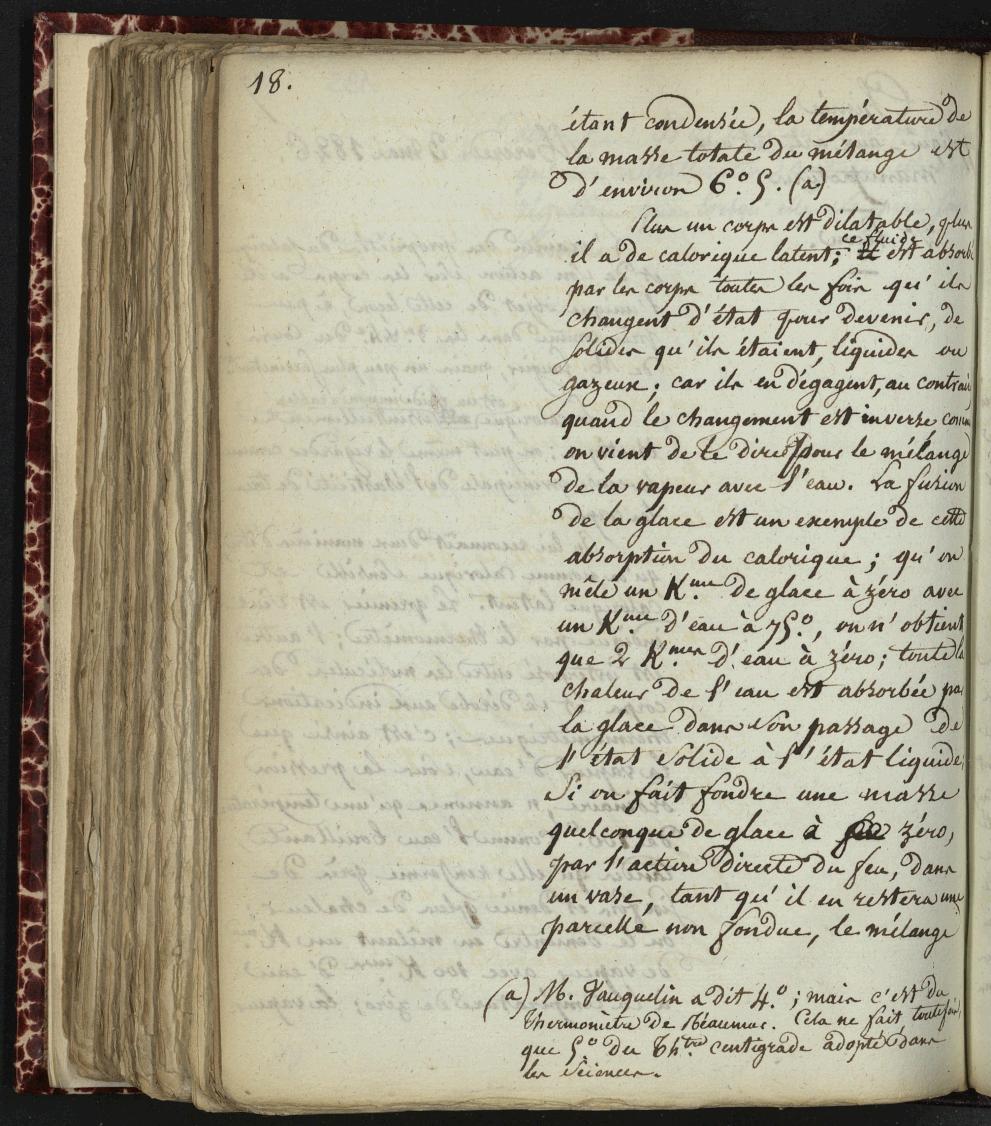 18.
étant condensée, la température de
la masse totale du mélange est
d'environ 6.° 5. (a)
Plus un corps est dilatable, plus
il a de calorique latent; le fluide est absorbé
par les corps toutes les fois qu'ils
changent d'état pour devenir, de
solides qu'ils étaient, liquides ou
gazeux; car ils en dégagent, au contrai
quand le changement est inverse comm
on vient de le dire pour le mélange
de la vapeur avec l'eau. La fusion
de la glace est un exemple de cette
absorption du calorique; qu'on
mêle un K.me de glace à zéro avec
un K.me d'eau à 75.°, on n'obtient
que 2 K.mes d'eau à zéro; toute la
chaleur de l'eau est absorbée pa
la glace dans son passage de
l'état solide à l'état liquide.
Si on fait fondre une masse
quelconque de glace à zéro,
par l'action directe du feu, dans
un vase, tant qu'il en restera une
parcelle non fondue, le mélange
(a) M. Vauquelin a dit 4.°; mais c'est du
Thermomètre de Réaumur. Cela ne fait toutefois
que 5.° du Th.tre centigrade adopté dans
les Sciences.